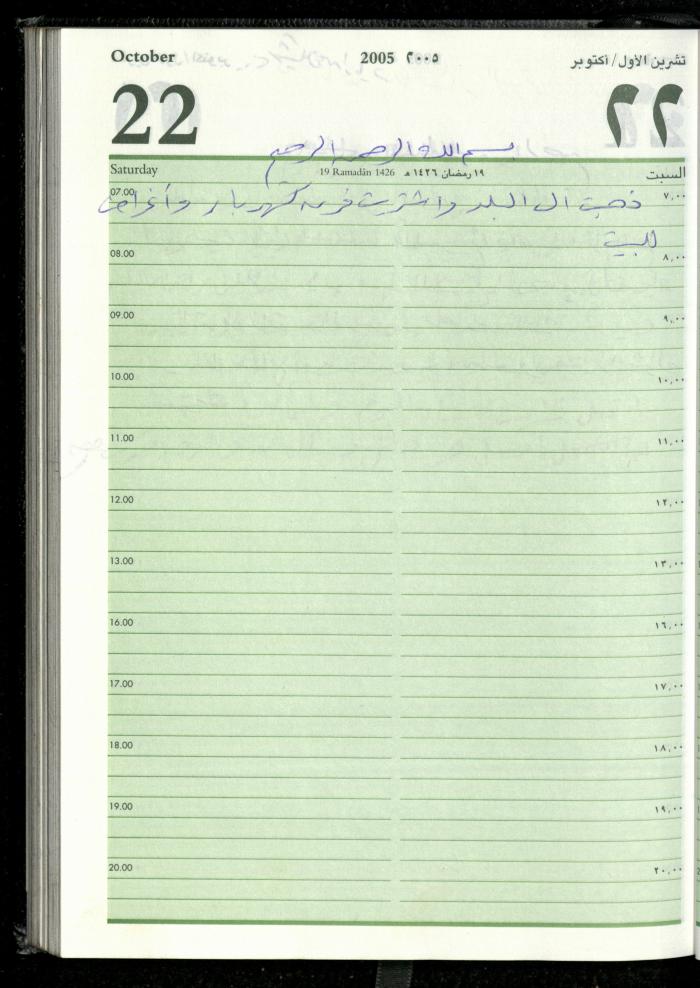 October 2005 ٢٠٠٥ تشرين الأول/أكتوبر
22 ٢٢
بسم الله الرحمن الرحيم
Saturday 19 Ramadân 1426 ١٩ رمضان ١٤٢٦ هـ السبت
07.00 ٧,٠٠
ذهبت الى البلد واشتريت كهرباء وأغراض
للبيت
08.00 ٨,٠٠
09.00 ٩,٠٠
10.00 ١٠,٠٠
11.00 ١١,٠٠
12.00 ١٢,٠٠
13.00 ١٣,٠٠
16.00 ١٦,٠٠
17.00 ١٧,٠٠
18.00 ١٨,٠٠
19.00 ١٩,٠٠
20.00 ٢٠,٠٠